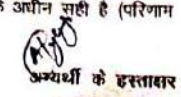 अधीन सही है (परिणाम
अभ्यर्थी के हस्ताक्षर